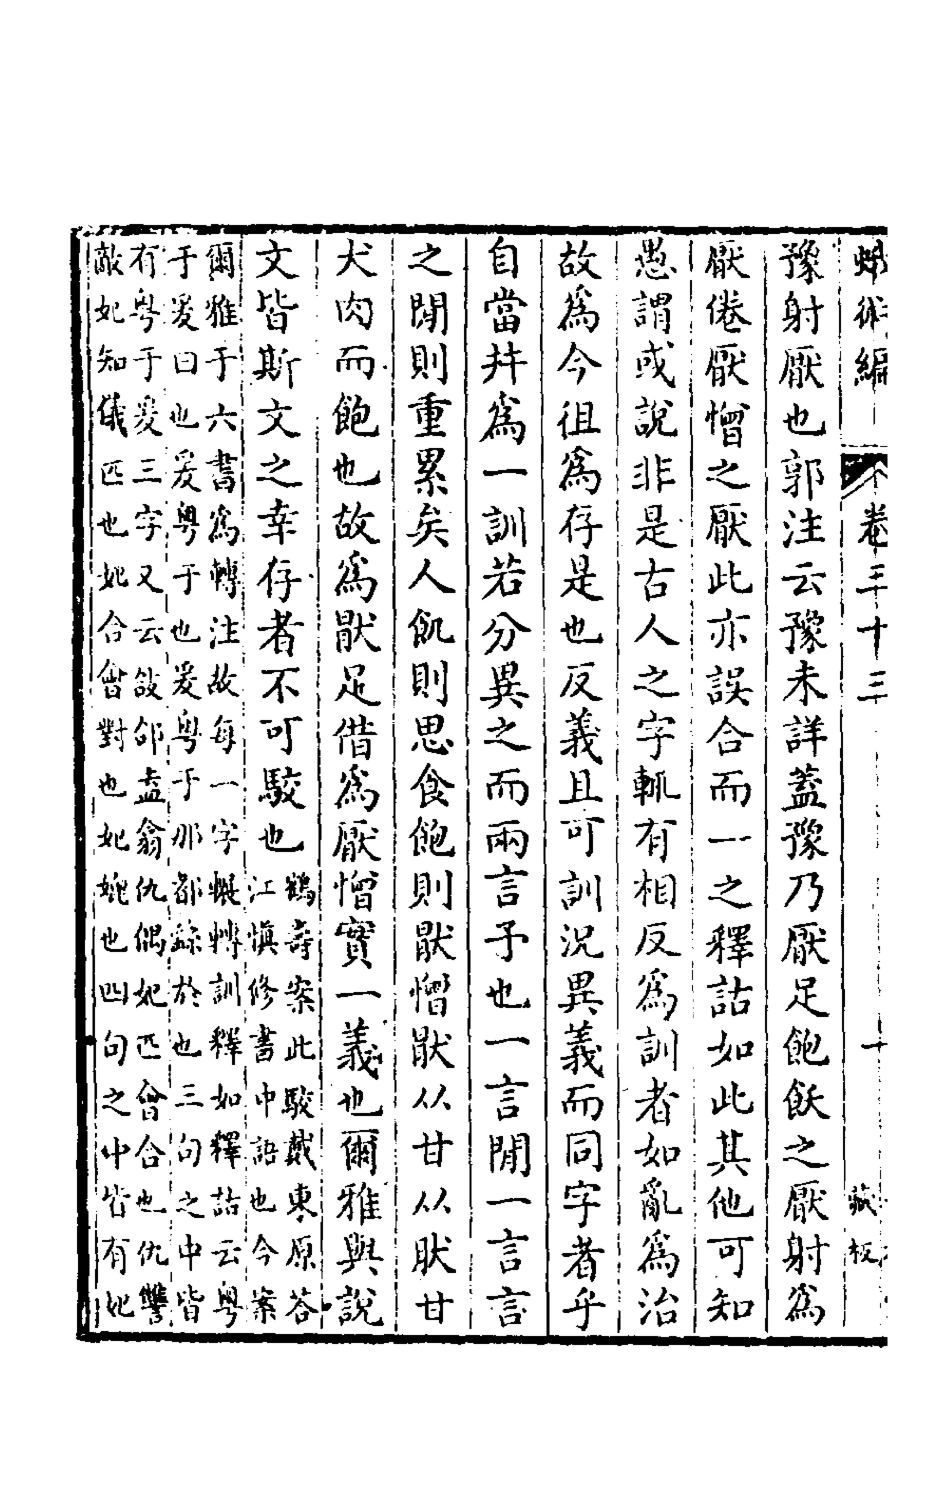 蛾術編 卷三十三 十 藏板
豫射厭也郭注云豫未詳蓋豫乃厭足飽飫之厭射爲
厭倦厭憎之厭此亦誤合而一之釋詁如此其他可知
愚謂或說非是古人之字輒有相反爲訓者如亂爲治
故爲今徂爲存是也反義且可訓況異義而同字者乎
自當幷爲一訓若分異之而兩言予也一言閒一言言
之閒則重累矣人飢則思食飽則猒憎猒从甘从肰甘
犬肉而飽也故爲猒足借爲厭憎實一義也爾雅與說
文皆斯文之幸存者不可駮也
鶴壽案此駮戴東原荅
江愼修書中語也今案
爾雅于六書爲轉注故每一字輾轉訓釋如釋詁云粤
于爰曰也爰粤于也爰粤于那都繇於也三句之中皆
有粤于爰三字又云敆郃盍翕仇偶妃匹會合也仇讐
敵妃知儀匹也妃合會對也妃媲也四句之中皆有妃